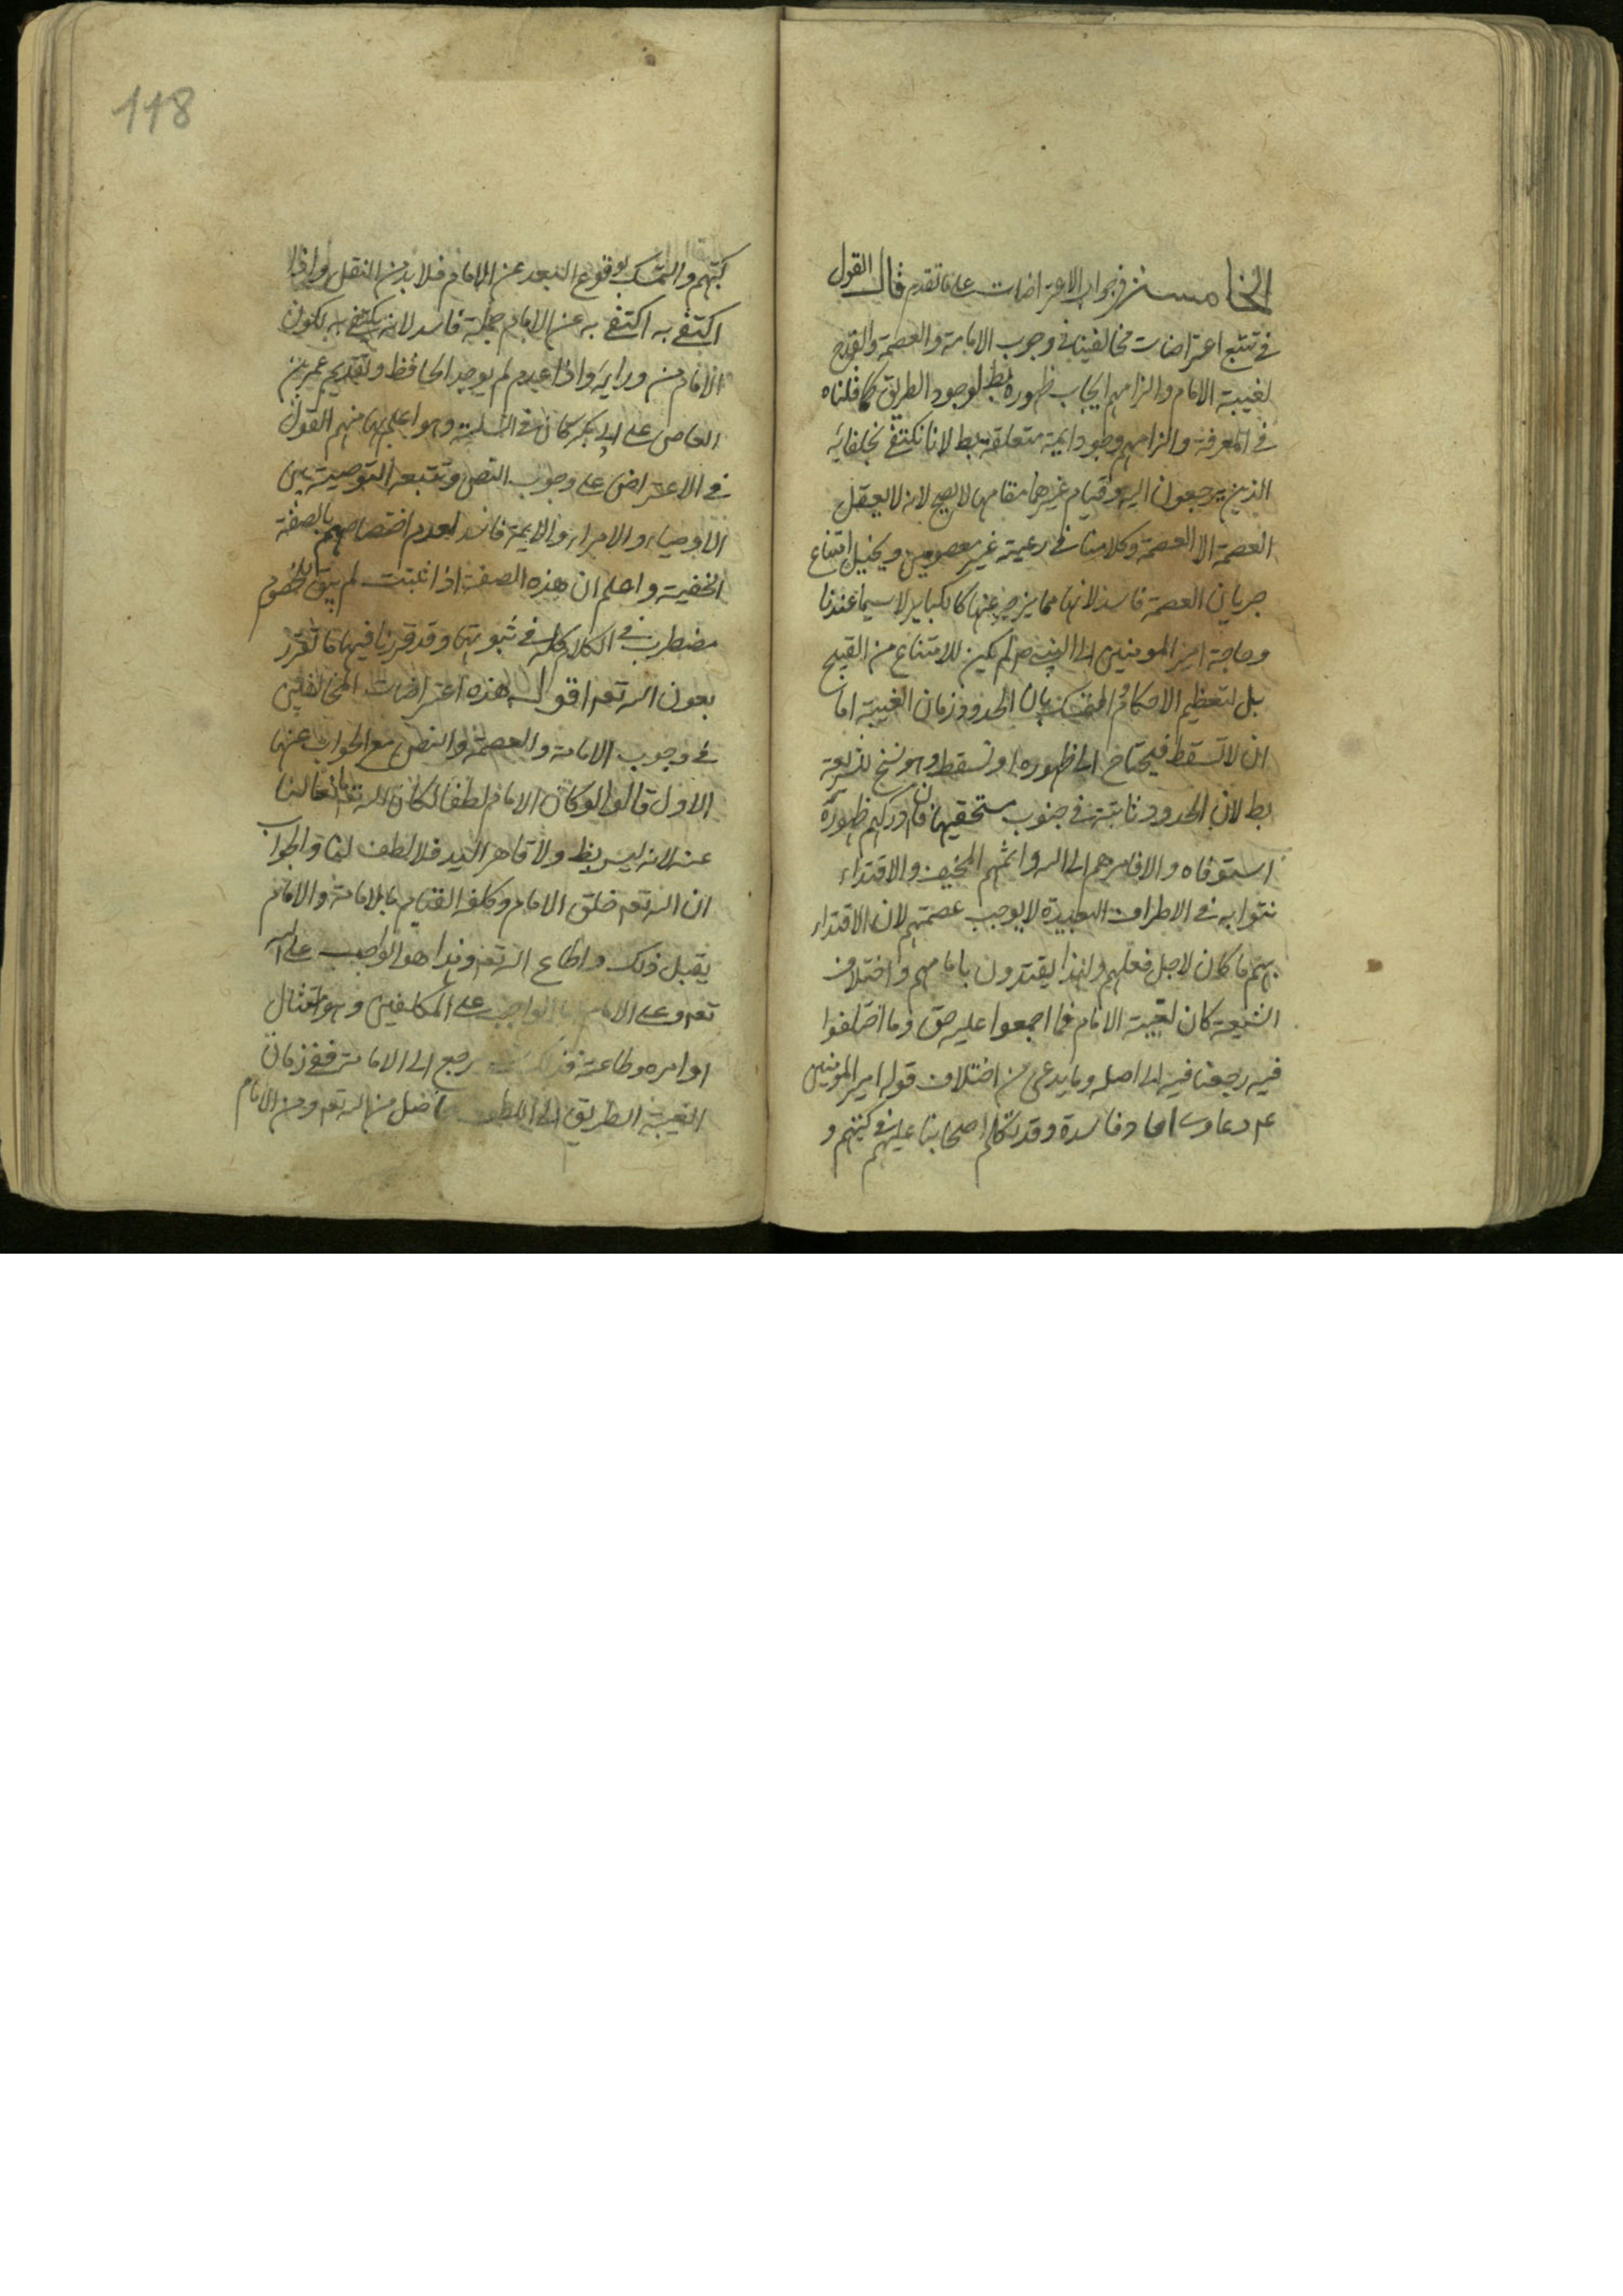 الخامس في جواب الاعتراضات على ما تقدم قال القول
في تتبع اعتراضات مخالفينا في وجوب الامامة والعصمة والقدح
لغيبة الامام والزامهم ايجاب ظهوره بط لوجود الطريق كما قلناه
في المعرفة والزامهم وجود ايمة متعلقة بط لانا نكتفي بخلفائه
الذين يرجعون اليه وقيام غيرها مقامها لا يصح لانه لا يعقل
العصمة الا العصمة وكلامنا في رعية غير معصومين وتخيل امتناع
جريان العصمة فاسد لانها مما يزجر عنها كالكباير لا سيما عندنا
وحاجة امير المومنين الى النبي ص لم يكن للامتناع من القبيح
بل لتعظيم الاحكام والتمسك بان الحدود زمان الغيبة اما
ان لا تسقط فيحتاج الى ظهوره او تسقط وهو نسخ للشريعة
بط لان الحدود ثابتة في جنوب مستحقيها فان ادركهم ظهوره
استوفاه والا فامرهم الى الله واثمهم المخيف والاقتداء
بنوابه في الاطراف البعيدة لا يوجب عصمتهم لان الاقتداء
بهم ما كان لاجل فعلهم ولهذا يقتدون بامامهم واختلاف
الشيعة كان لغيبة الامام فما اجمعوا عليه حق وما اختلفوا
فيه رجعنا فيه الى اصل وما يدعى من اختلاف قول امير المومنين
ع دعاوى احاد فاسدة وقد تكلم اصحابنا عليها في كتبهم و
118
كتبهم والتمسك بوقوع البعد عن الامام فلا بد من النقل واذا
اكتفي به اكتفي به عن الامام جملة فاسد لانه يكتفي به لكون
الامام من ورايه واذا عدم لم يوجد الحافظ وتقديم عمرو بن
العاص على ابي بكر كان في السلم وهو اعلم بها منهم القول
في الاعتراض على وجوب النص وتتبعه التوصية بين
الاوصياء والامراء والايمة فاسد لعدم اختصاصهم بالصفة
الخفية واعلم ان هذه الصفة اذا ثبتت لم يبق للخصوم
مضطرب في الكلام كله في ثبوتها وقد قررنا فيها ما تقرر
بعون الله تعه اقول هذه اعتراضات المخالفين
في وجوب الامامة والعصمة والنص مع الجواب عنها
الاول قالوا لو كان الامام لطفا لكان الله تعه مانعا لنا
عنه لانه ليس بظ ولا قاهر اليد فلا لطف لنا والجواب
ان الله تعه خلق الامام وكلفه القيام بالامامة والامام
يقبل ذلك واطاع الله تعه وهذا هو الواجب على الله
تعه وعلى الامام اما الواجب على المكلفين وهو امتثال
اوامره وطاعته يرجع الى الامامة ففي زمان
الغيبة الطريق الى اللطف حاصل من الله تعه ومن الامام